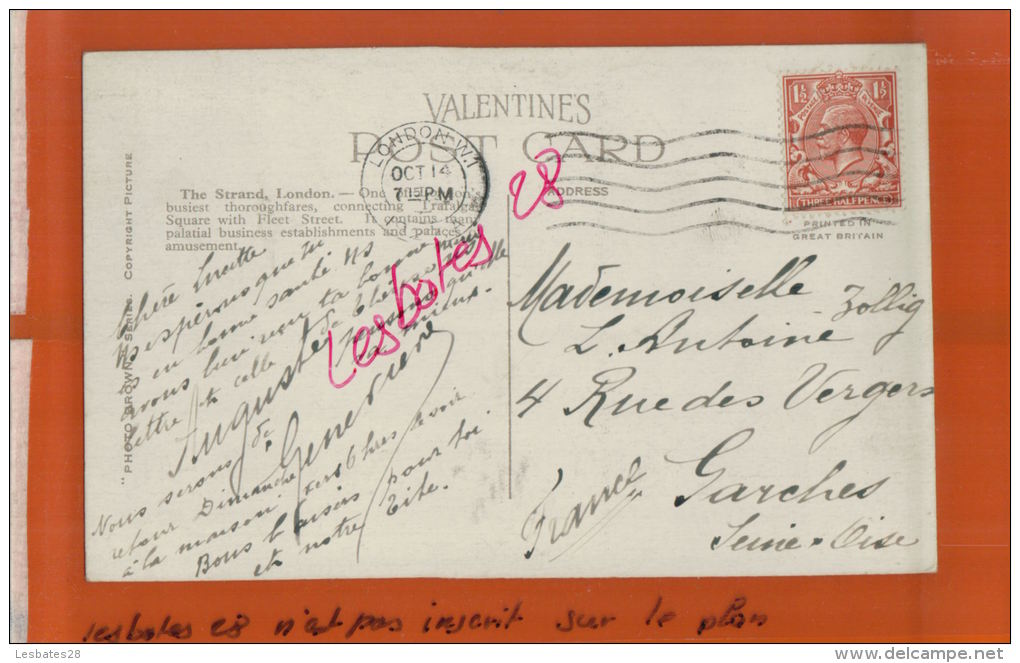 VALENTINE'S
POST CARD
LONDON. W.1
OCT 14
7 15 PM
1½ POSTAGE REVENUE 1½
THREE HALFPENCE
ADDRESS
PRINTED IN
GREAT BRITAIN
"PHOTO BROWN" SERIES. COPYRIGHT PICTURE
The Strand, London. — One of London's
busiest thoroughfares, connecting Trafalgar
Square with Fleet Street. It contains many
palatial business establishments and palaces of
amusement.
Chère Lucette
Ns espérons que tu
es en bonne santé Ns
avons bien reçu ta bonne
lettre et celle de Thérèse
pensons qu'elle
va mieux.
Auguste
Geneviève
Nous serons de
retour Dimanche soir
à la maison vers 6 hres
Bons baisers pour toi
et notre Tite.
Mademoiselle
L. Antoine Zollig
4 Rue des Vergers
Garches
Seine & Oise
France
Lesbates 28
lesbates 28 n'est pas inscrit sur le plan
Lesbates28
www.delcampe.net